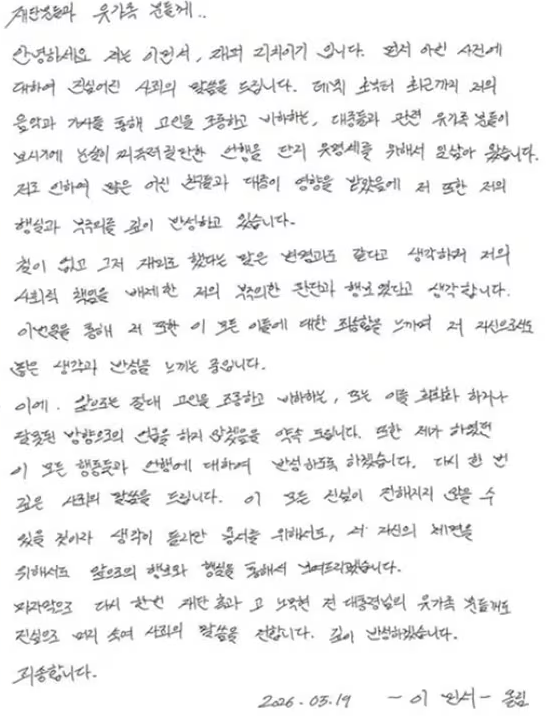 재단분들과 유가족 분들께..
안녕하세요 저는 이민서, 래퍼 리치이기 입니다. 먼저 이번 사건에
대하여 진심어린 사죄의 말씀을 드립니다. 데뷔 초부터 최근까지 저의
음악과 가사를 통해 고인을 조롱하고 비하하는, 대중들과 관련 유가족 분들이
보시기에 눈살이 찌푸려질만한 언행을 단지 유명세를 위해서 일삼아 왔습니다.
저로 인하여 많은 어린 친구들과 대중이 영향을 받았음에 저 또한 저의
행실과 부주의를 깊이 반성하고 있습니다.
철이 없고 그저 재미로 했다는 말은 변명과도 같다고 생각하며 저의
사회적 책임을 배제한 저의 부주의한 판단과 행보였다고 생각합니다.
이번 일을 통해 저 또한 이 모든 이들에 대한 죄송함을 느끼며 저 자신으로서도
많은 생각과 반성을 느끼는 중입니다.
이에, 앞으로는 절대 고인을 조롱하고 비하하는, 또는 이를 희화화 하거나
잘못된 방향으로의 언급을 하지 않겠음을 약속 드립니다. 또한 제가 하였던
이 모든 행동들과 언행에 대하여 반성하도록 하겠습니다. 다시 한 번
깊은 사죄의 말씀을 드립니다. 이 모든 진심이 전해지지 않을 수
있을 것이라 생각이 들지만 용서를 위해서도, 저 자신의 체면을
위해서도 앞으로의 행보와 행실을 통해서 보여드리겠습니다.
마지막으로 다시 한번 재단 측과 고 노무현 전 대통령님의 유가족 분들께도
진심으로 머리 숙여 사죄의 말씀을 전합니다. 깊이 반성하겠습니다.
죄송합니다.
2026.03.19 - 이 민서 - 올림